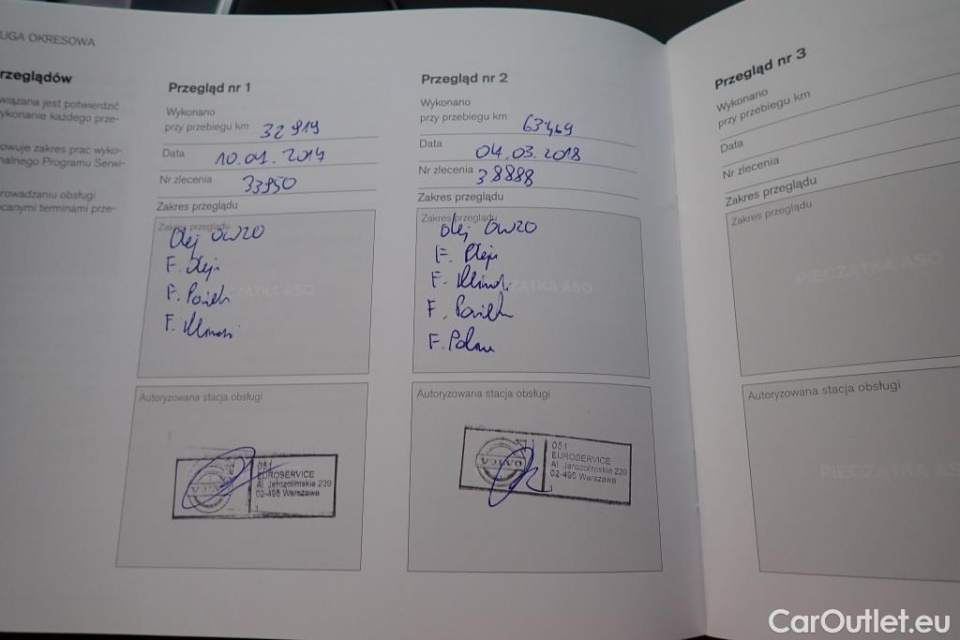 UGA OKRESOWA
rzeglądów
wiązana jest potwierdzić
ykonanie każdego prze-
owuje zakres prac wyko-
nalnego Programu Serwi-
rowadzaniu obsługi
canymi terminami prze-
Przegląd nr 1
Wykonano
przy przebiegu km 32 919
Data 10.01.2017
Nr zlecenia 33950
Zakres przeglądu
Zakres przeglądu
Olej 0W20
F. Oleju
F.
F.
Autoryzowana stacja obsługi
VOLVO
051
EUROSERVICE
Al. Jerozolimskie 239
02-495 Warszawa
Przegląd nr 2
Wykonano
przy przebiegu km 63469
Data 04.03.2018
Nr zlecenia 38888
Zakres przeglądu
Zakres przeglądu
PIECZĄTKA ASO
Olej 0W20
F. Oleju
F.
F.
F.
Autoryzowana stacja obsługi
VOLVO
051
EUROSERVICE
Al. Jerozolimskie 239
02-495 Warszawa
Przegląd nr 3
Wykonano
przy przebiegu km
Data
Nr zlecenia
Zakres przeglądu
Zakres przeglądu
PIECZĄTKA ASO
Autoryzowana stacja obsługi
PIECZĄTKA ASO
CarOutlet.eu